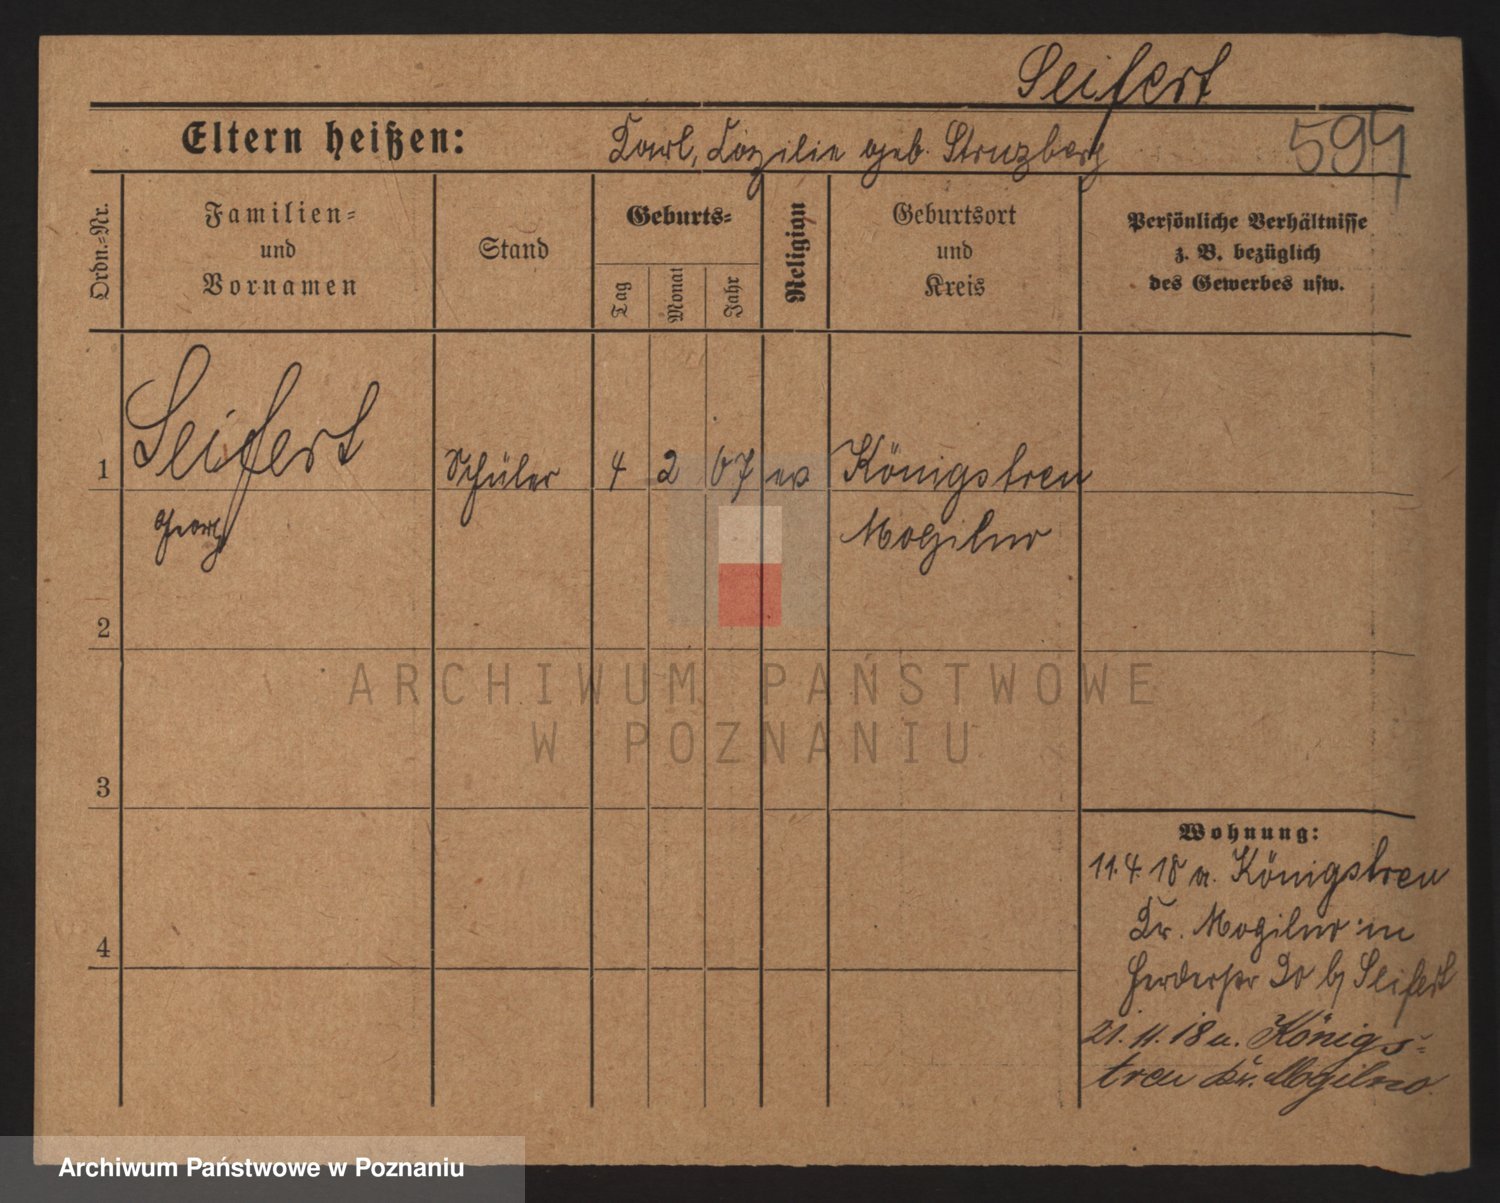 Seifert
Eltern heißen: Karl, Cäzilie geb. Struzberg
594
Ordn.-Nr.
Familien-
und
Vornamen
Stand
Geburts-
Tag
Monat
Jahr
Religion
Geburtsort
und
Kreis
Persönliche Verhältnisse
z. B. bezüglich
des Gewerbes usw.
1 Seifert Schüler 4 2 07 ev Königstreu
Georg Mogilno
2
3
4
ARCHIWUM PAŃSTWOWE
W POZNANIU
Wohnung:
11.4.18 v. Königstreu
Kr. Mogilno in
Herderstr 20 bj Seifert
21.11.18 n. Königs-
treu Kr. Mogilno.
Archiwum Państwowe w Poznaniu